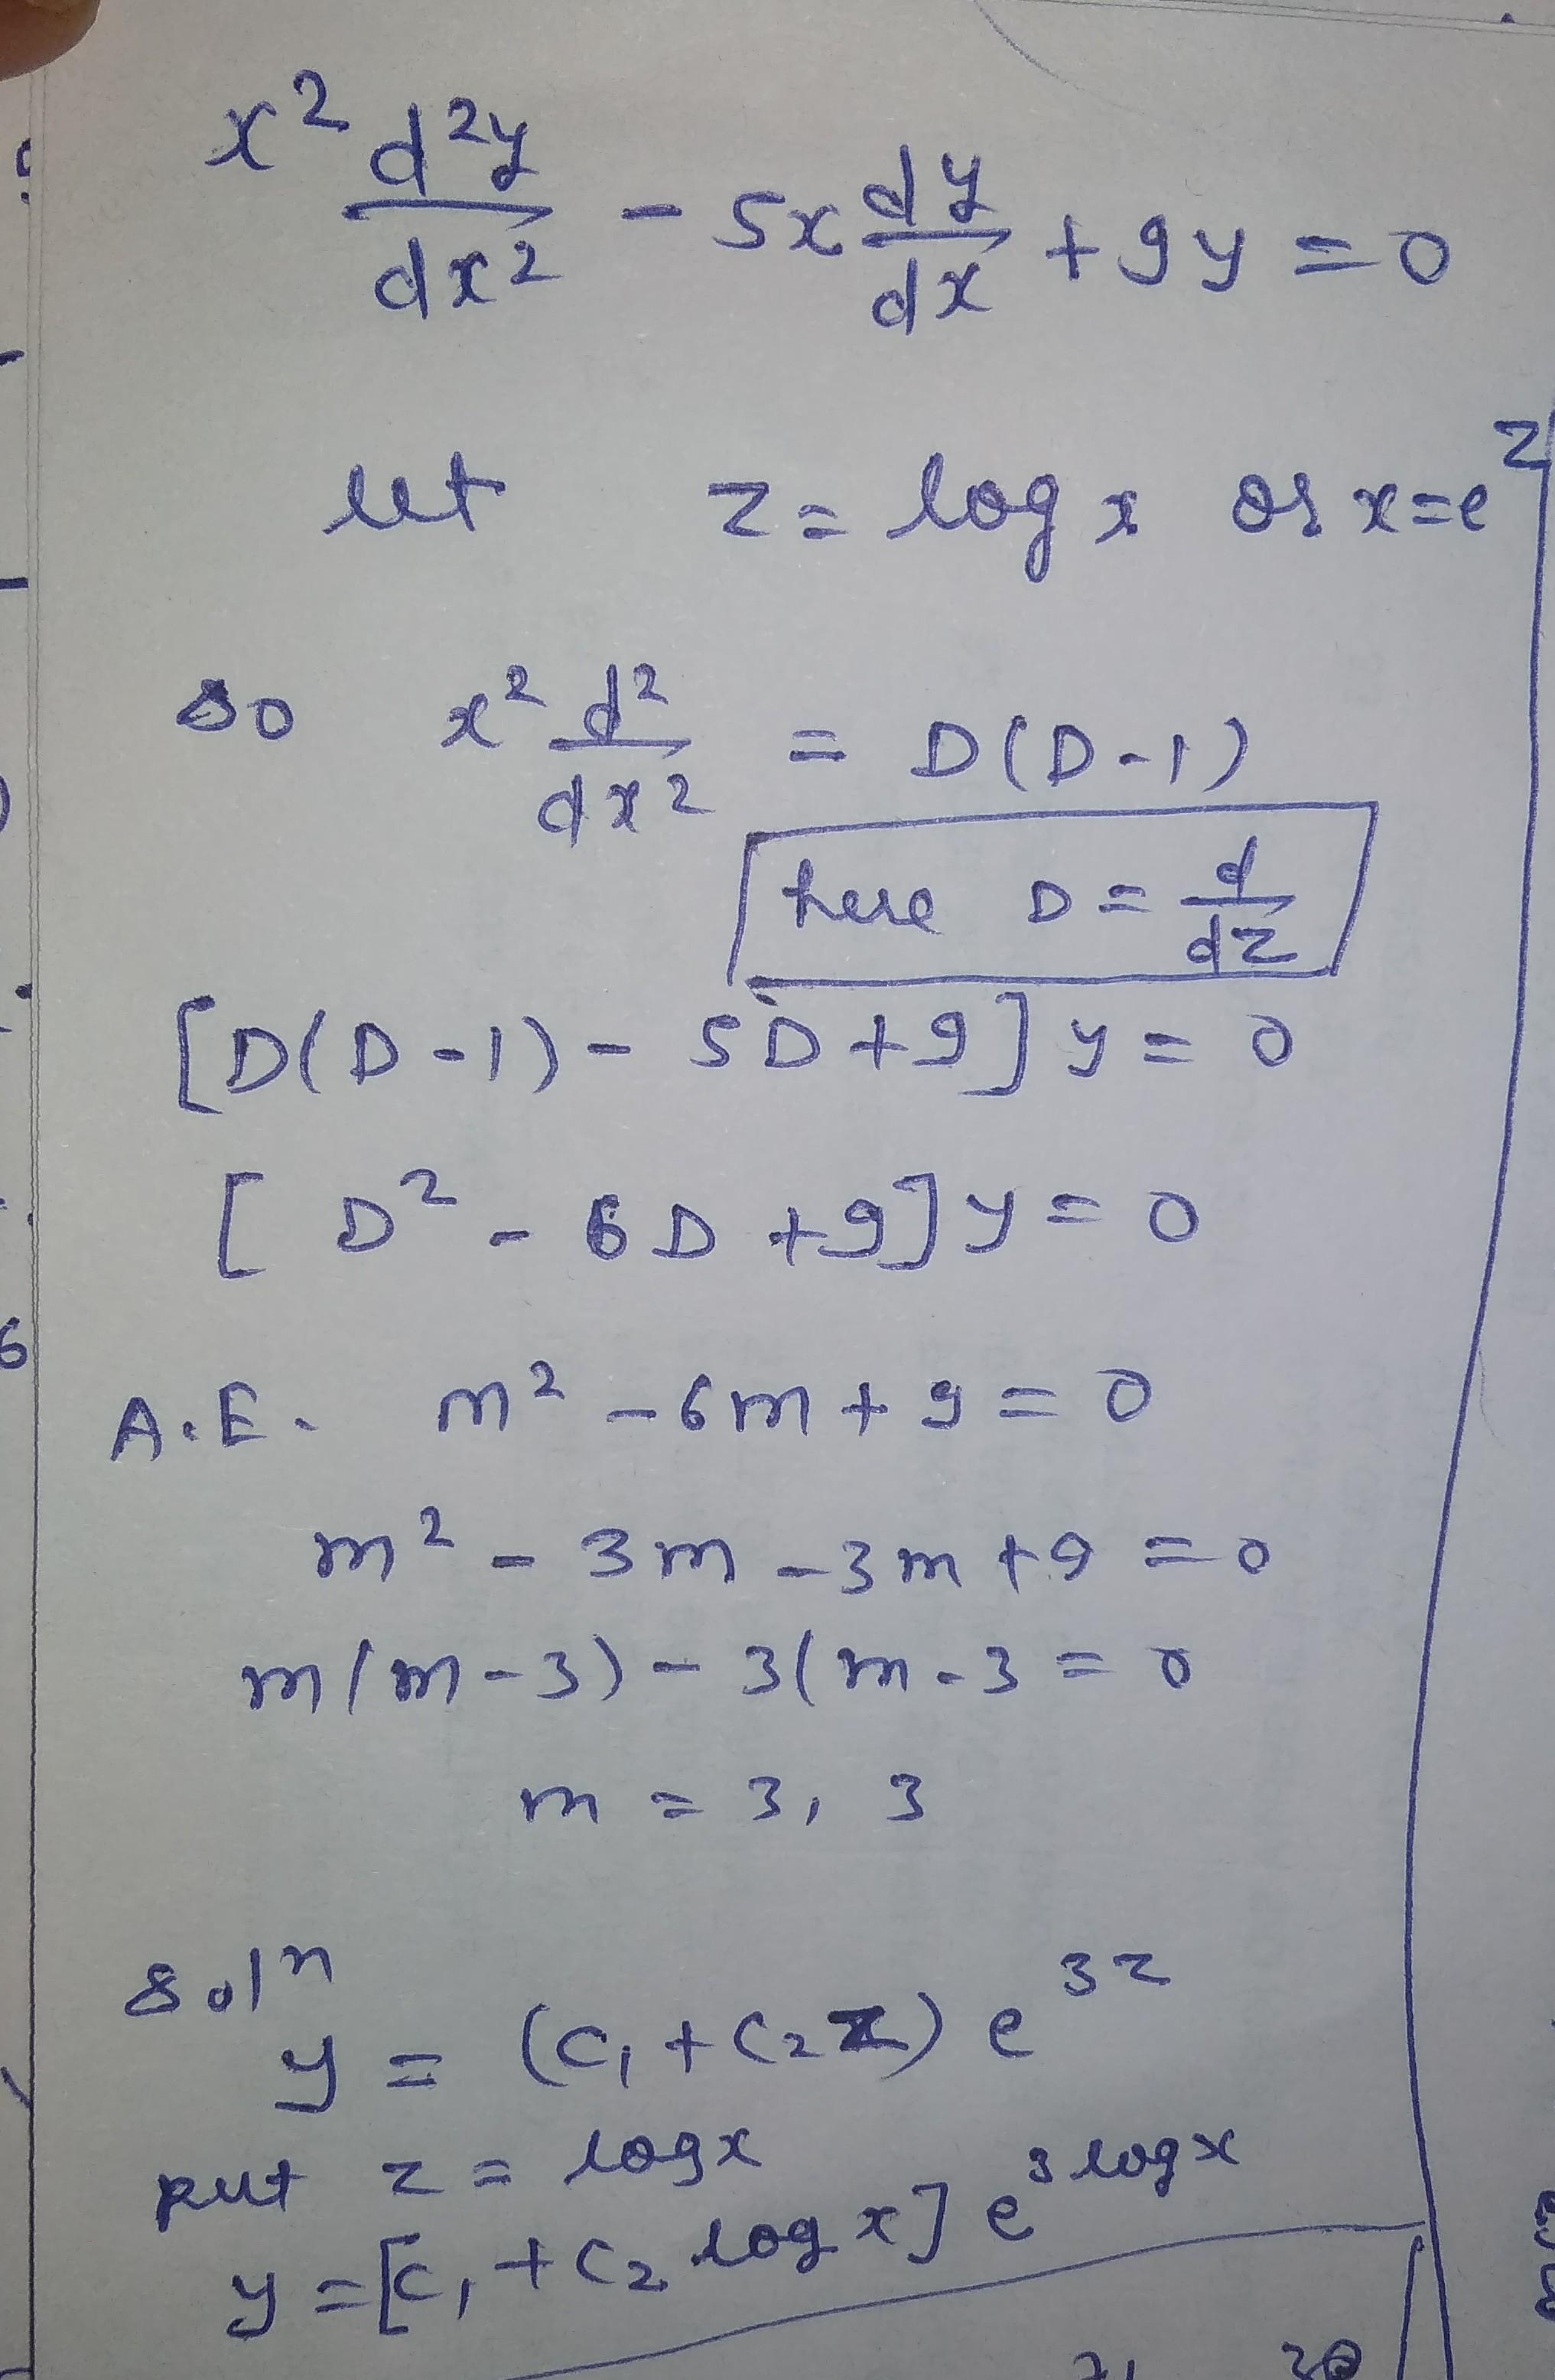 x² d²y/dx² - 5x dy/dx + 9y = 0
let z = log x or x = e^z
so x² d²/dx² = D(D-1)
here D = d/dz
[D(D-1) - 5D + 9] y = 0
[D² - 6D + 9] y = 0
A.E. m² - 6m + 9 = 0
m² - 3m - 3m + 9 = 0
m(m-3) - 3(m-3 = 0
m = 3, 3
solⁿ
y = (C₁ + C₂z) e^3z
put z = log x
y = [C₁ + C₂ log x] e^3 log x